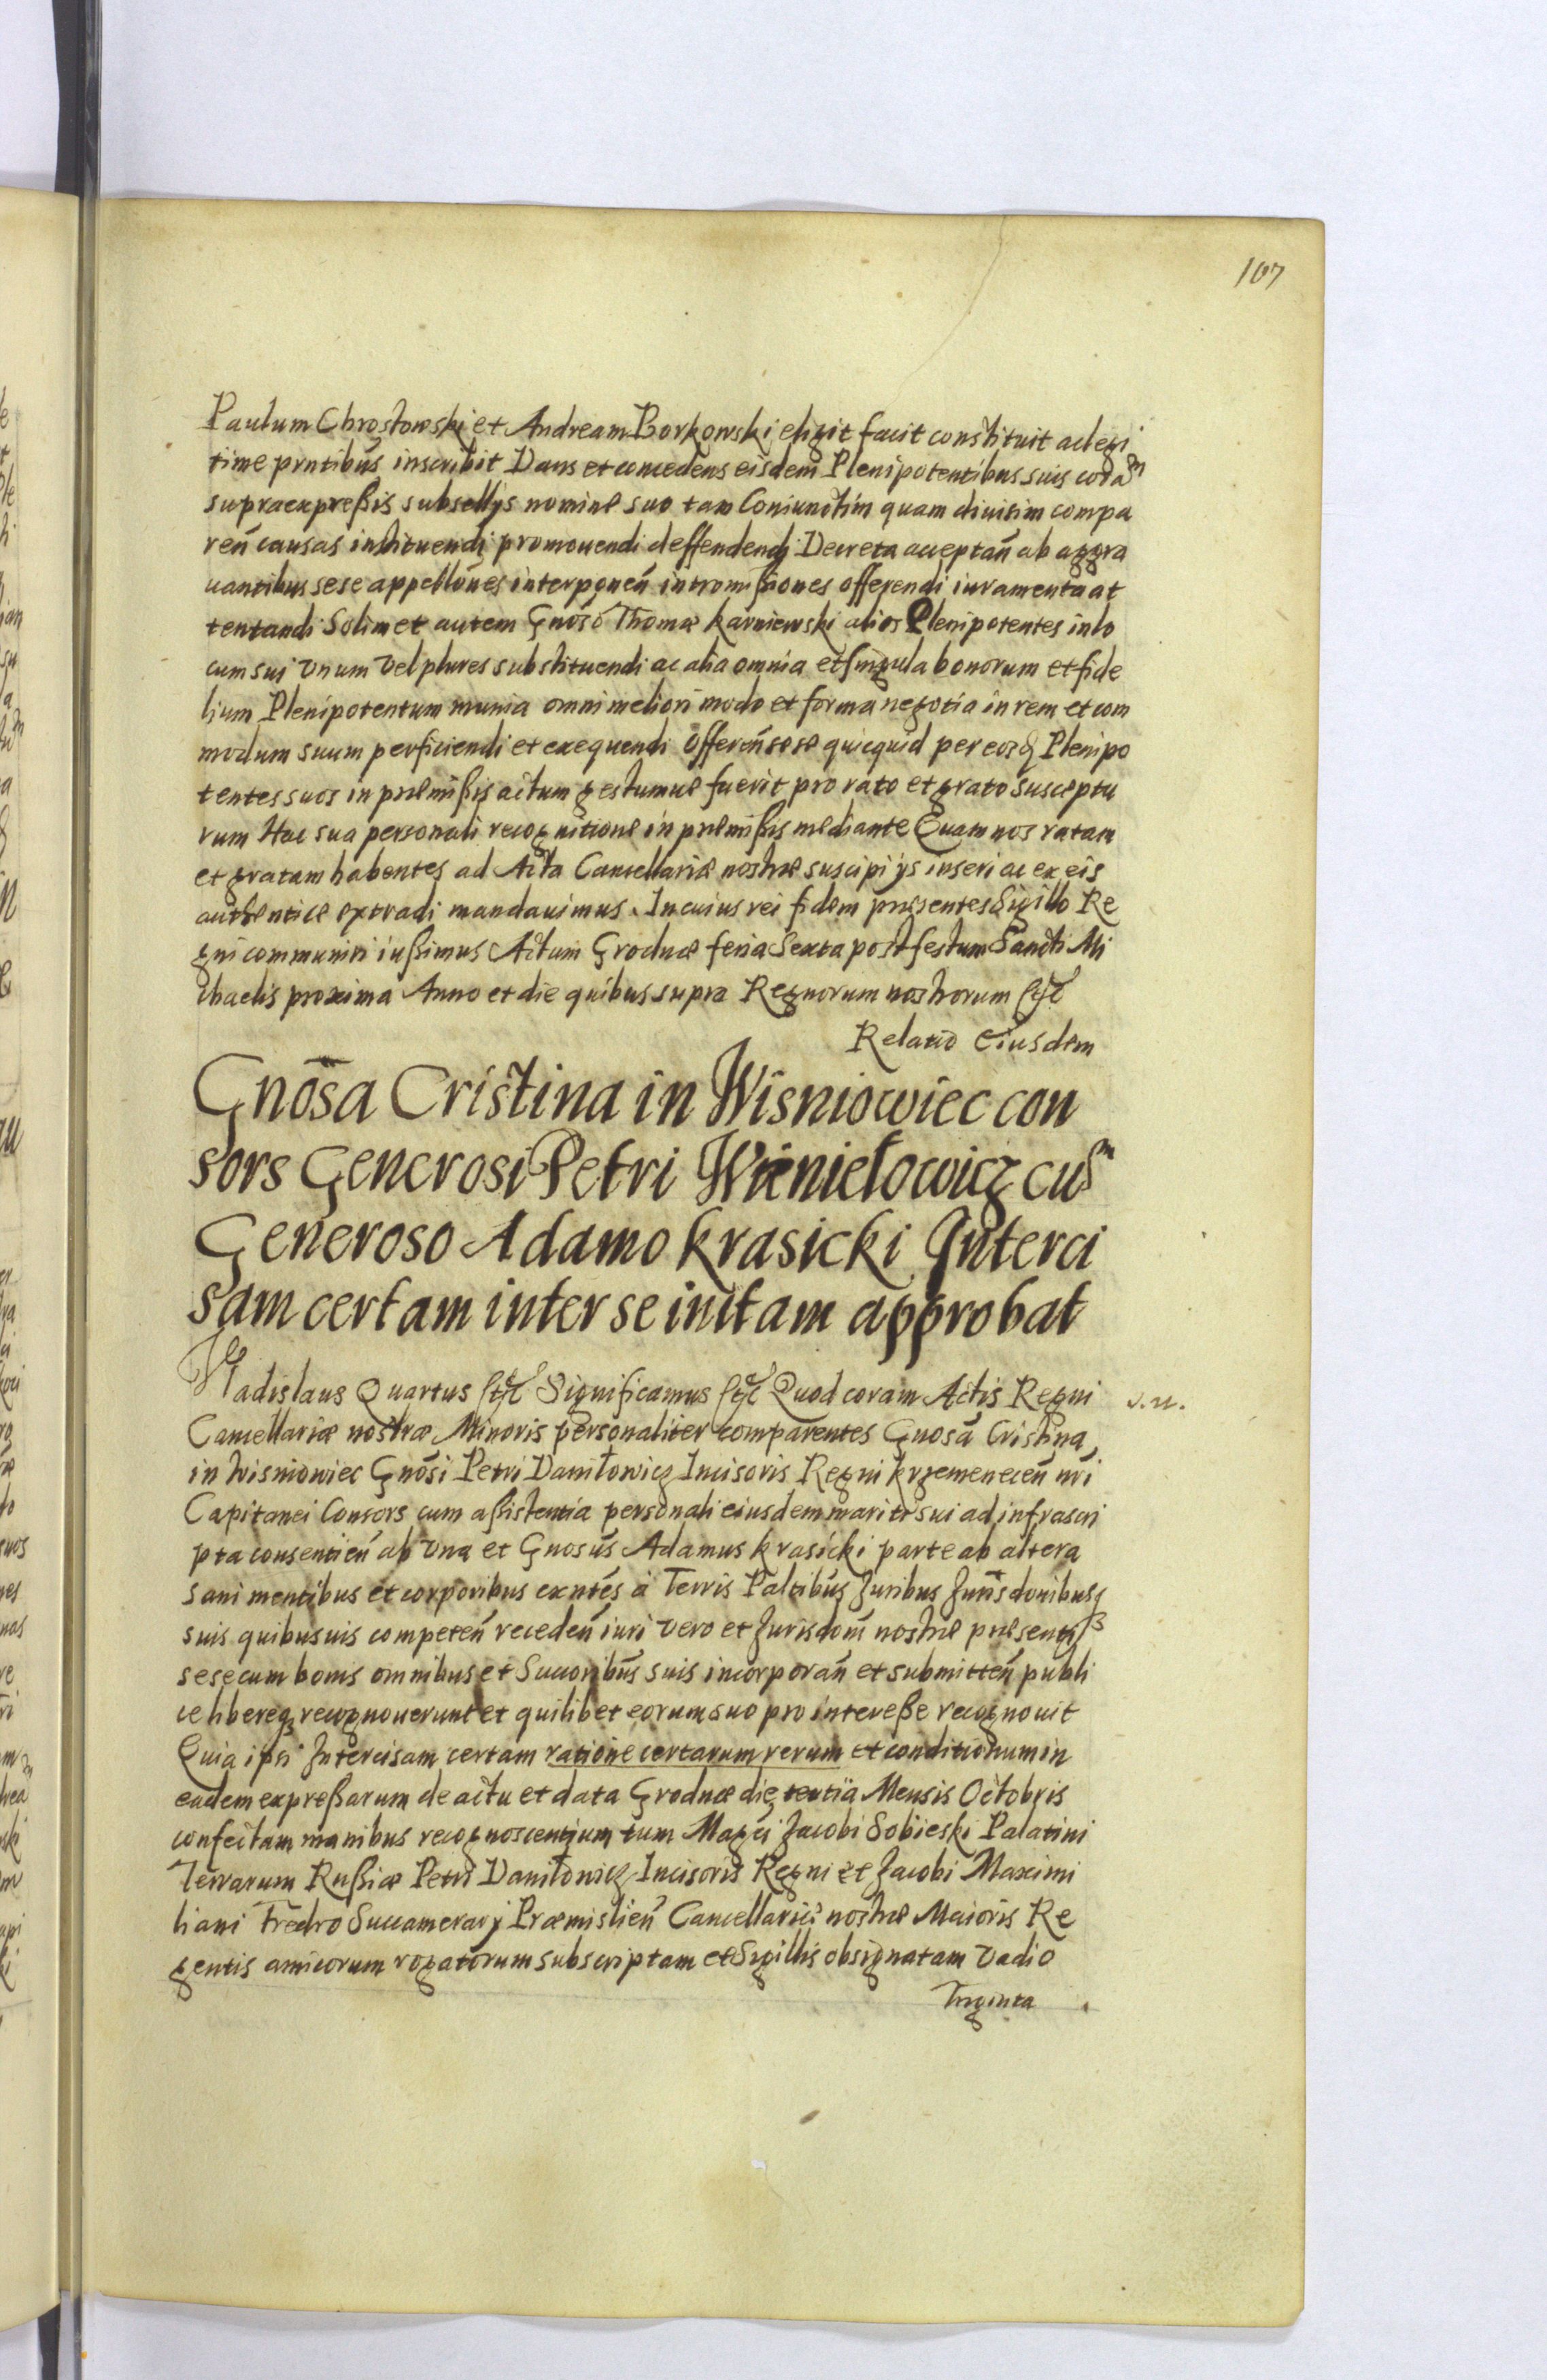 107
Paulum Chrostowski et Andream Borkowski eligit facit constituit ac legi
time pntibus inscribit Dans et concedens eisdem Plenipotentibus suis coram
supraexpreßis subsellijs nomine suo tam Coniunctim quam diuisim compa
ren̄ causas instituendi promouendi deffendendi Decreta acceptan̄ ab aggra
uantibus sese appellōnes interponen̄ intromißiones offerendi iuramenta at
tentandi Solimet autem Gnoso Thomæ Karniewski alios Plenipotentes in lo
cum sui vnum vel plures substituendi ac alia omnia et singula bonorum et fide
lium Plenipotentum munia omni meliori modo et forma negotia in rem et com
modum suum perficiendi et exequendi Offeren̄ sese quicquid per eosd Plenipo
tentes suos in præmißis actum gestumue fuerit pro rato et grato susceptu
rum Hac sua personali recognitione in præmißis mediante Quam nos ratam
et gratam habentes ad Acta Cancellariæ nostræ suscipi ijs inseri ac ex eis
authentice extradi mandauimus. In cuius rei fidem præsentes Sigillo Re
gni communiri iußimus Actum Grodnæ feria Sexta post festum Sancti Mi
chaelis proxima Anno et die quibus supra Regnorum nostrorum etc
Relatio Eiusdem
Gnosa Cristina in Wisniowiec con
sors Generosi Petri Wienielowicz cum
Generoso Adamo Krasicki Interci
sam certam inter se initam approbat
Vladislaus Quartus etc Significamus etc Quod coram Actis Regni
v. u.
Cancellariæ nostræ Minoris personaliter comparentes Gnosa Cristina
in Wisniowiec Gnosi Petri Daniłowicz Incisoris Regni Krzemenecen̄ nri
Capitanei Consors cum aßistentia personali eiusdem mariti sui ad infrascri
pta consentien̄ ab vna et Gnosus Adamus Krasicki parte ab altera
sani mentibus et corporibus exntes à Terris Paltibus Juribus Jurisdonibusq
suis quibusuis competen̄ receden̄ iuri vero et Jurisdoni nostræ præsenti
sese cum bonis omnibus et Succoribus suis incorporan̄ et submitten̄ publi
ce libereq recognouerunt et quilibet eorum suo pro intereße recognouit
Quia ipsi Intercisam certam ratione certarum rerum et conditionum in
eadem expreßarum de actu et data Grodnæ die tertia Mensis Octobris
confectam manibus recognoscentium tum Magci Jacobi Sobieski Palatini
Terrarum Rußiæ Petri Daniłowicz Incisoris Regni et Jacobi Maximi
liani Fredro Succamerarij Præmislien̄ Cancellariæ nostræ Maioris Re
gentis amicorum rogatorum subscriptam et Sigillis obsignatam vadio
Triginta